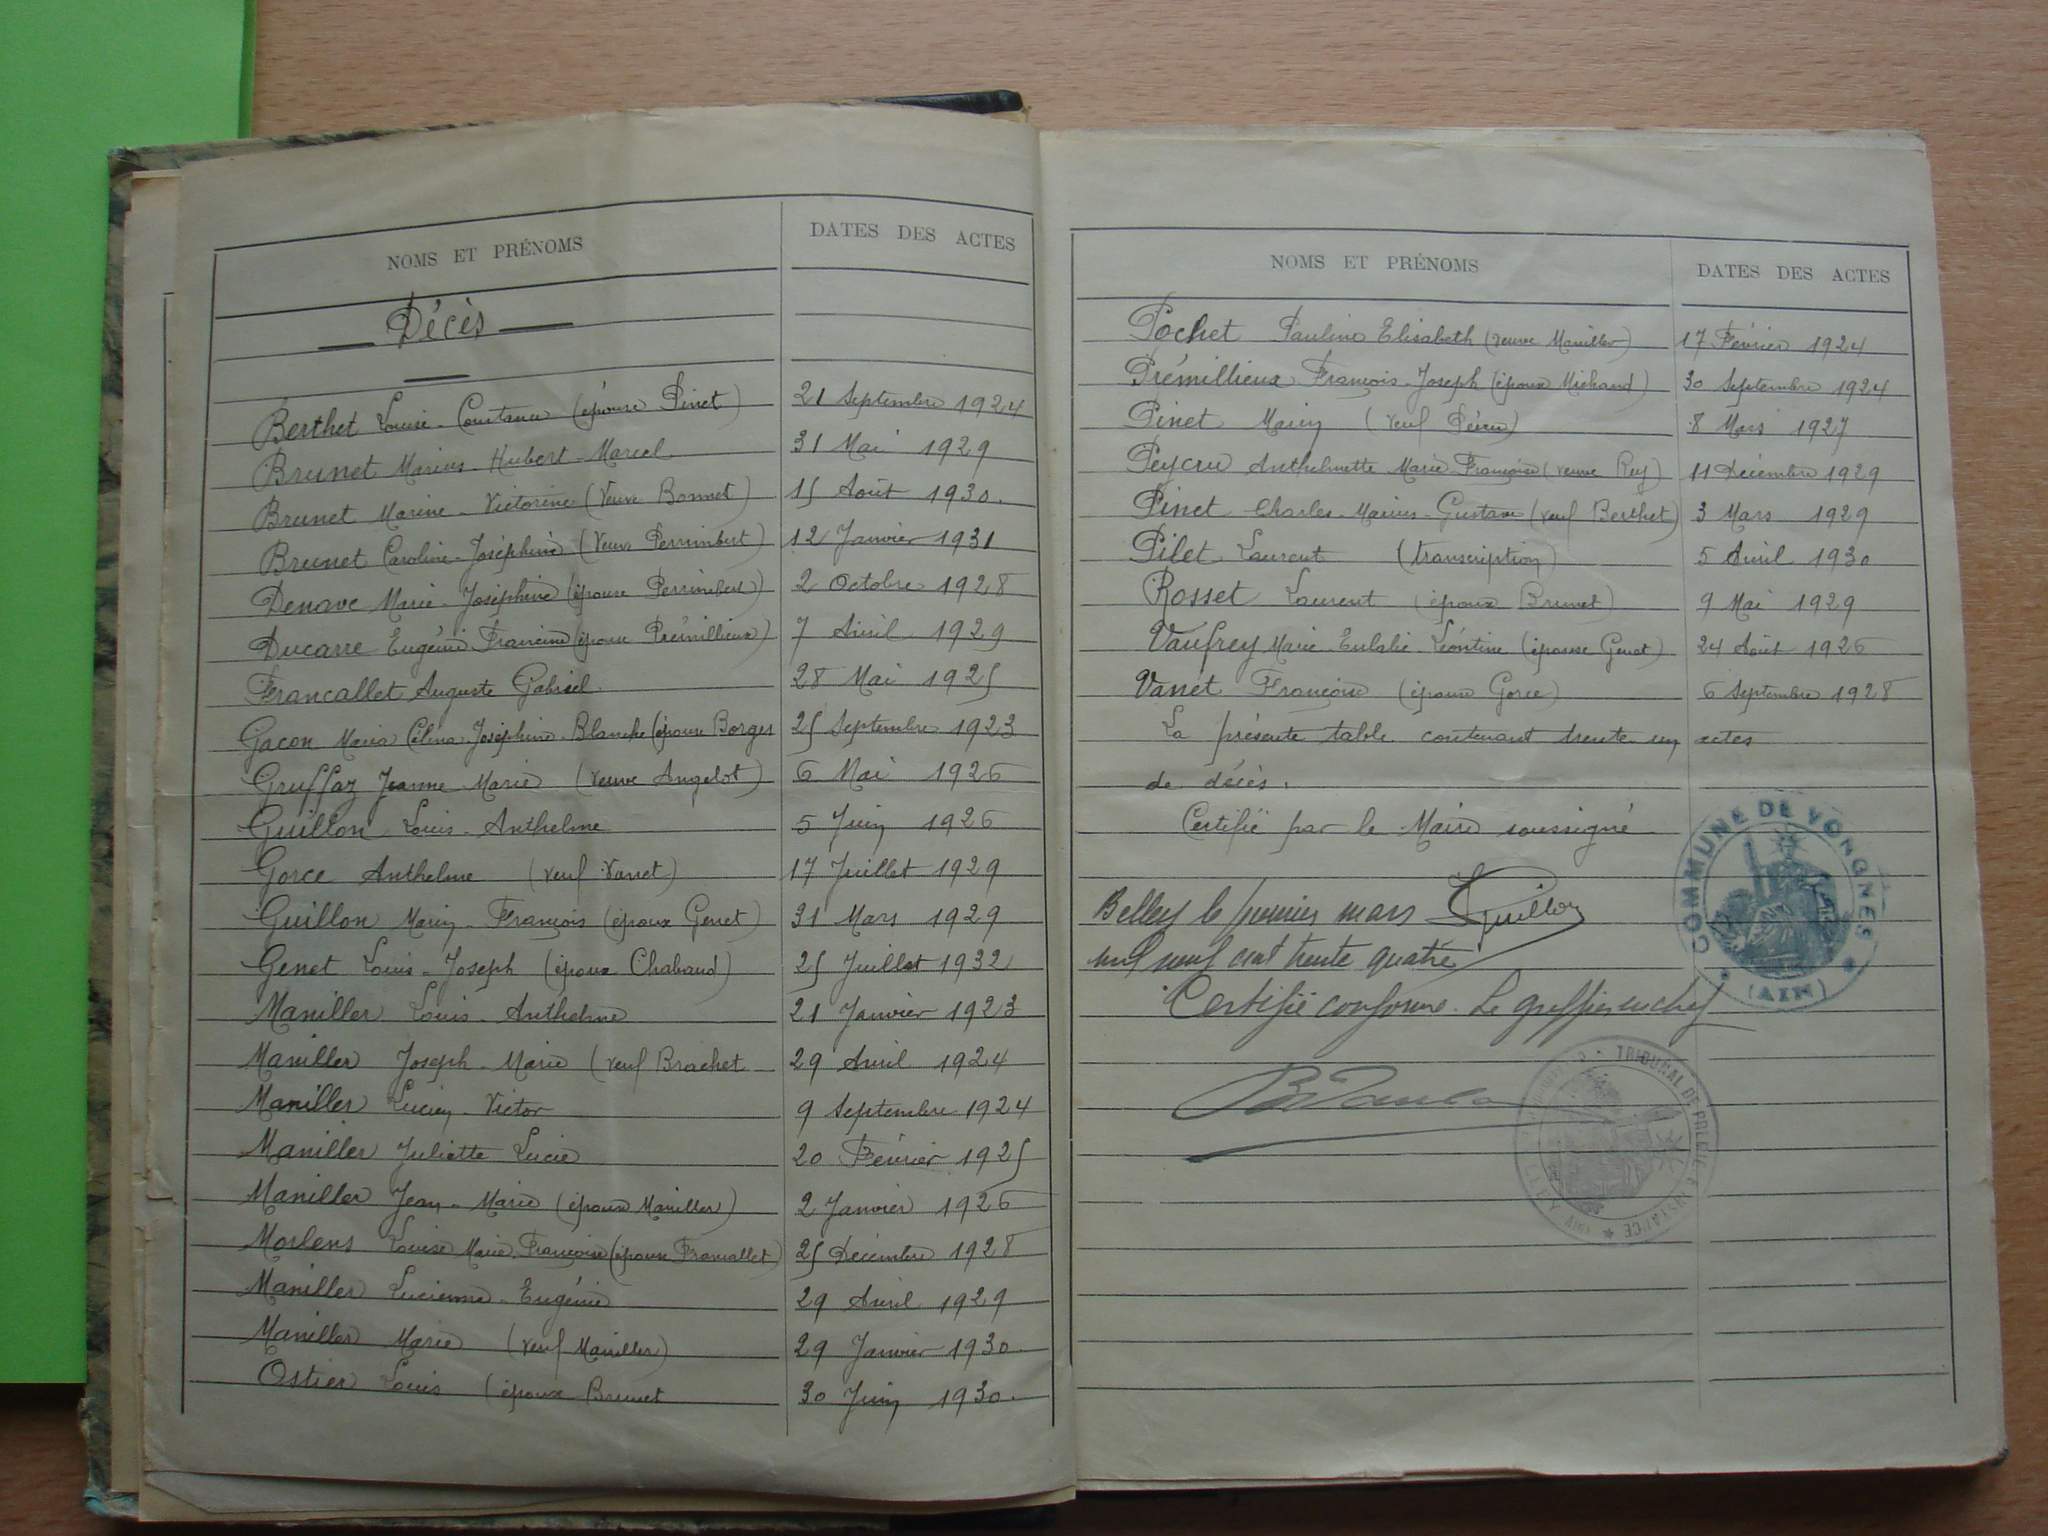 NOMS ET PRÉNOMS
DATES DES ACTES
Décès
Berthet Louise-Constance (épouse Pinet) 21 Septembre 1924
Brunet Marius-Hubert-Marcel 31 Mai 1929
Brunet Marine-Victorine (Veuve Bonnet) 15 Août 1930.
Brunet Caroline-Joséphine (Veuve Perrimbert) 12 Janvier 1931
Denave Marie-Joséphine (épouse Perrimbert) 2 Octobre 1928
Ducarre Eugénie Francine (épouse Prémillieux) 7 Avril 1929
Francallet Auguste Gabriel 28 Mai 1925
Gacon Maria Célina Joséphine-Blanche (épouse Borges 25 Septembre 1923
Gruffaz Jeanne-Marie (veuve Angelot) 6 Mai 1926
Guillon Louis-Anthelme 5 Juin 1926
Gorce Anthelme (veuf Vanet) 17 Juillet 1929
Guillon Marin-François (époux Genet) 31 Mars 1929
Genet Louis-Joseph (époux Chabaud) 25 Juillet 1932
Maniller Louis-Anthelme 21 Janvier 1923
Maniller Joseph-Marie (veuf Brachet 29 Avril 1924
Maniller Lucien-Victor 9 Septembre 1924
Maniller Juliette Lucie 20 Février 1925
Maniller Jean-Marie (époux Maniller) 2 Janvier 1926
Morlens Louise Marie-Françoise (épouse Francallet) 25 Décembre 1928
Maniller Lucienne-Eugénie 29 Avril 1929
Maniller Marie (veuf Maniller) 29 Janvier 1930.
Ostier Louis (époux Brunet 30 Juin 1930.
NOMS ET PRÉNOMS
DATES DES ACTES
Pochet Pauline Elisabeth (veuve Maniller) 17 Février 1924
Prémillieux François-Joseph (époux Michaud) 30 Septembre 1924
Pinet Marin (veuf) 8 Mars 1927
Peycru Anthelmette Marie-Françoise (veuve Rey) 11 Décembre 1929
Pinet Charles-Marius-Gustave (veuf Berthet) 3 Mars 1929
Pilet Laurent (transcription) 5 Avril 1930
Rosset Laurent (époux Brunet) 9 Mai 1929
Vaufrey Marie-Eulalie-Léontine (épouse Genet) 24 Août 1926
Vanet Françoise (épouse Gorce) 6 Septembre 1928
La présente table contenant trente-un actes
de décès.
Certifié par le Maire soussigné
COMMUNE DE VONGNES
(AIN)
Belley le premier mars Guillon
mil neuf cent trente quatre
Certifié conforme. Le greffier en chef
TRIBUNAL DE PREMIERE INSTANCE